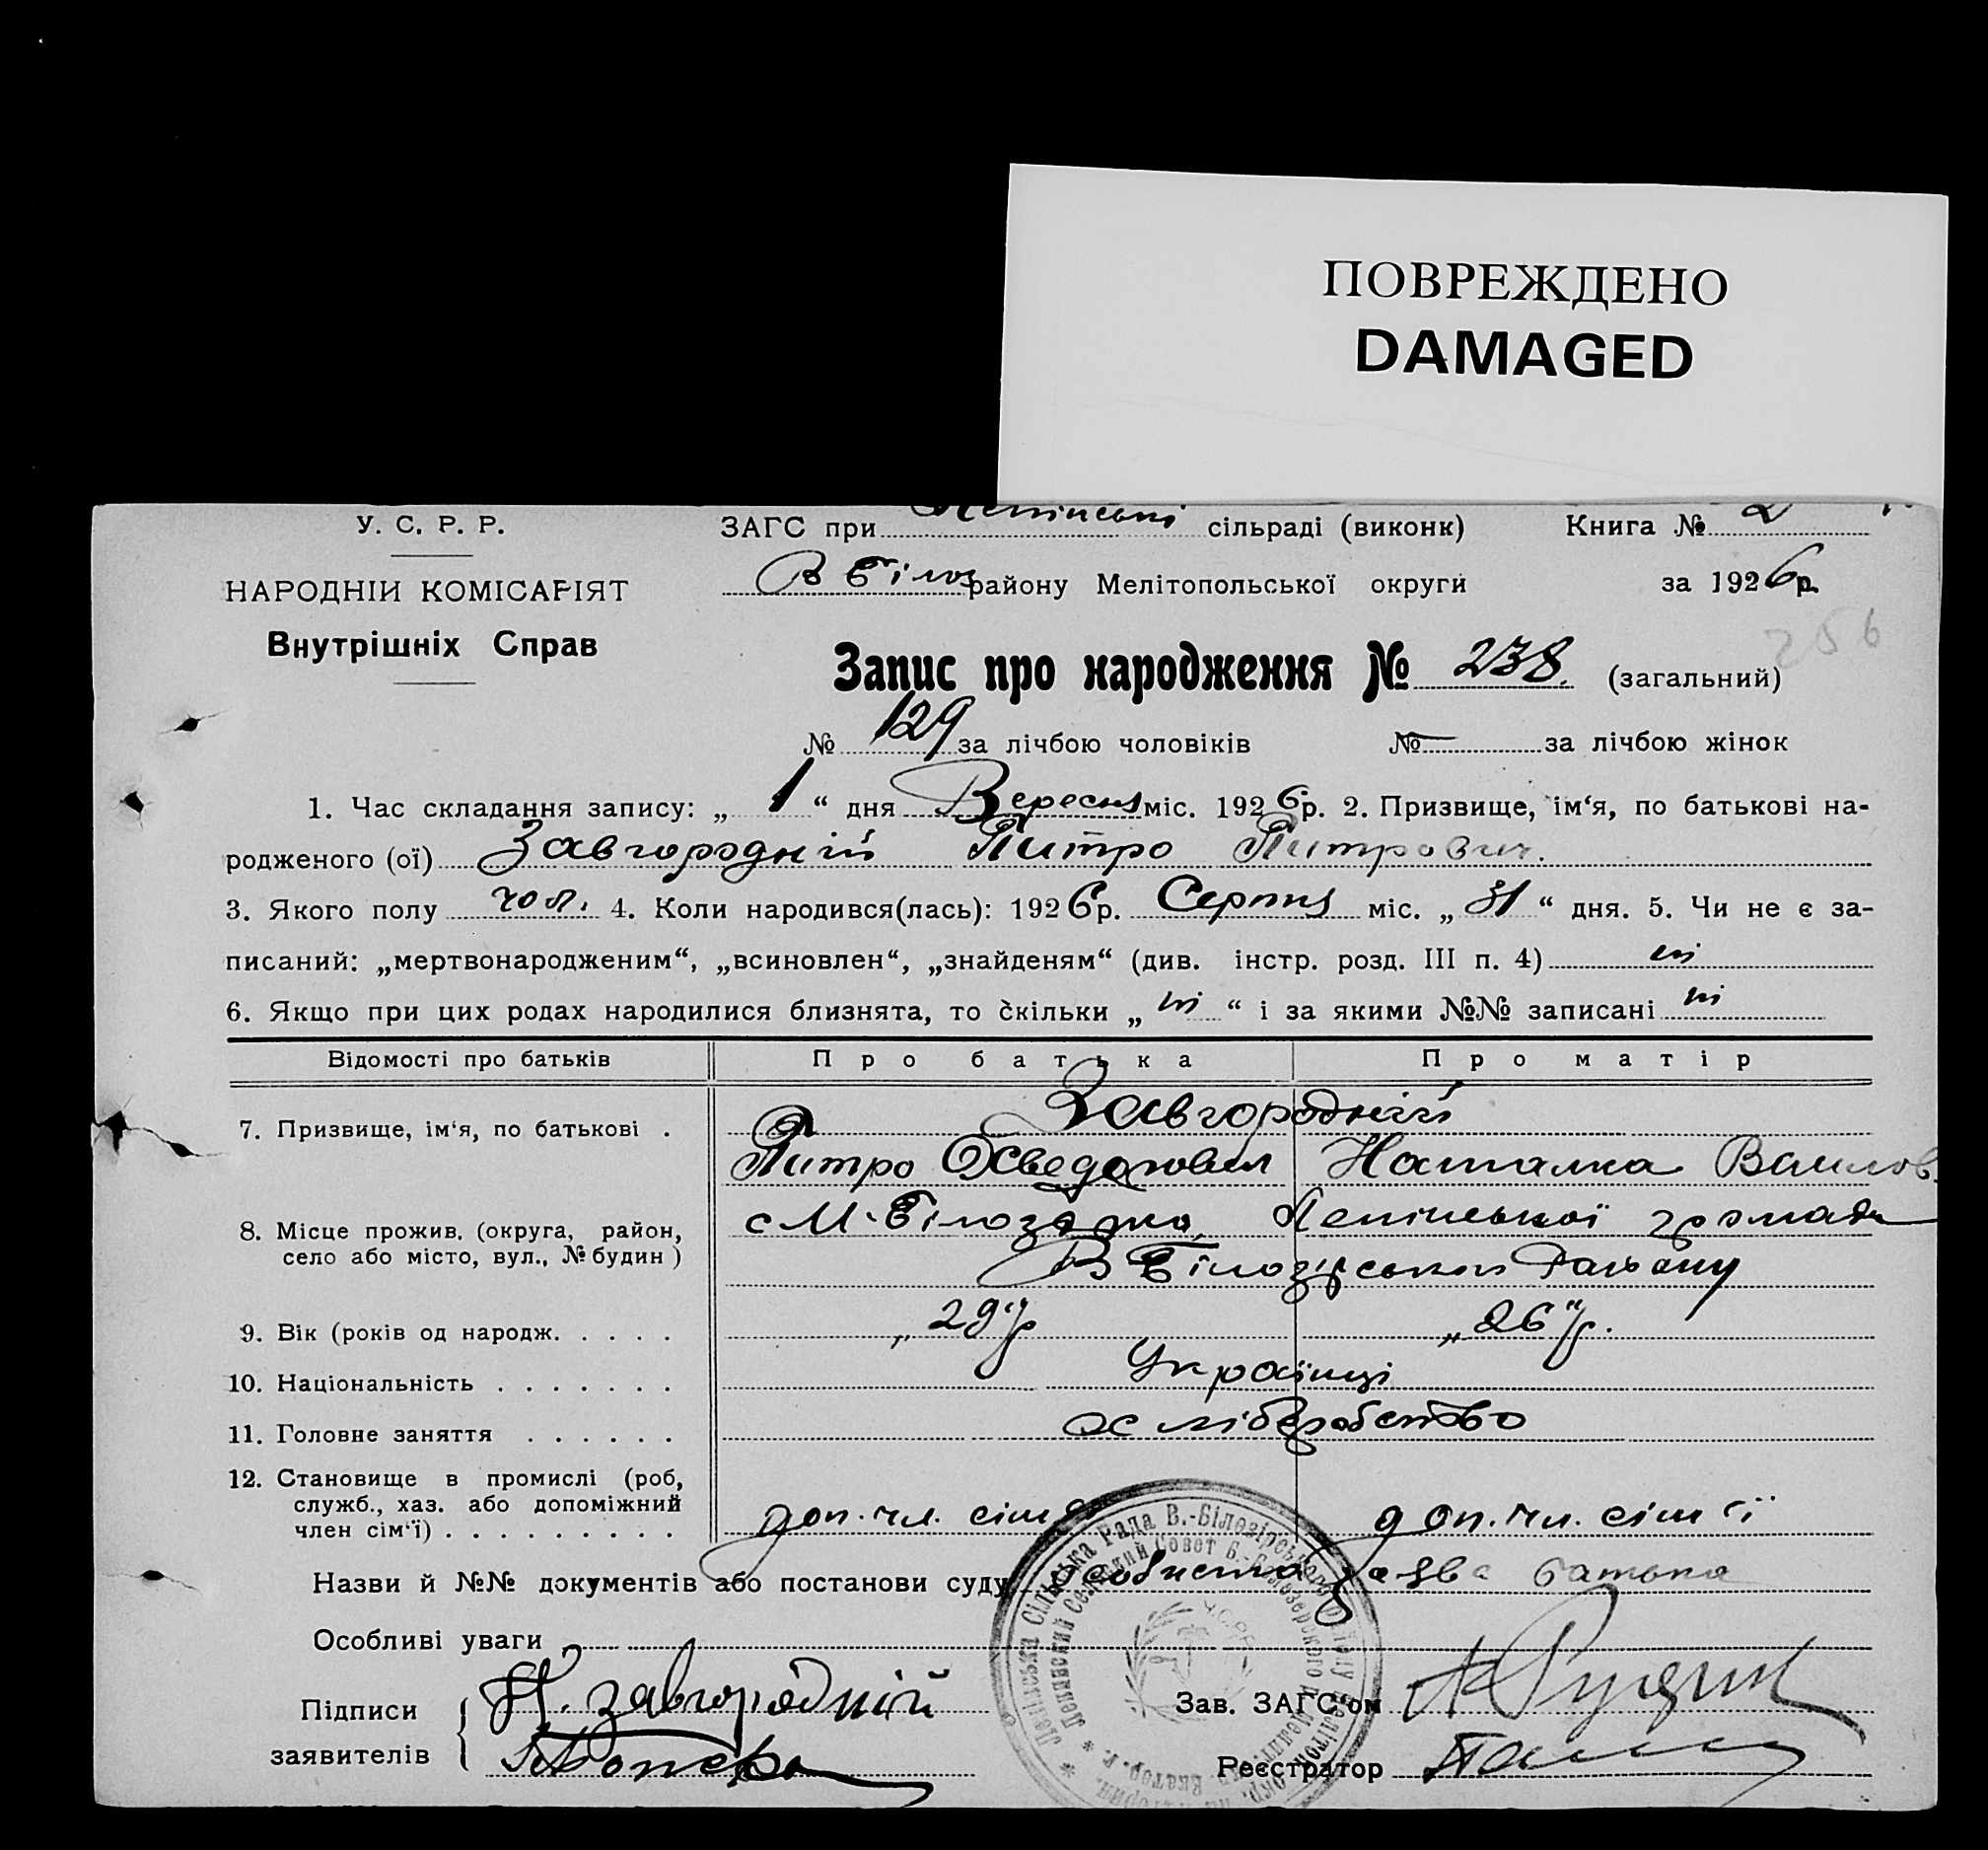 ПОВРЕЖДЕНО
DAMAGED
У. С. Р. Р.
ЗАГС при Ленінські сільраді (виконк) Книга № 2
НАРОДНІЙ КОМІСАРІЯТ
В Білоз району Мелітопольської округи за 1926 р.
Внутрішніх Справ
256
Запис про народження № 238. (загальний)
№ 129 за лічбою чоловіків № — за лічбою жінок
1. Час складання запису: „ 1 “ дня Вересня міс. 1926 р. 2. Призвище, ім‘я, по батькові на-
родженого (ої) Завгородній Питро Питрович.
3. Якого полу чол. 4. Коли народився(лась): 1926 р. Серпня міс. „ 31 “ дня. 5. Чи не є за-
писаний: „мертвонародженим“, „всиновлен“, „знайденям“ (див. інстр. розд. III п. 4) ні
6. Якщо при цих родах народилися близнята, то скільки „ ні “ і за якими №№ записані ні
Відомості про батьків Про батька Про матір
7. Призвище, ім‘я, по батькові . Завгородній
Питро Наталка
8. Місце прожив. (округа, район, с М-Білозірка, Ленінської громади
село або місто, вул., № будин )
В Білозірського Району
9. Вік (років од народж. . . . . „ 29 “ р „ 26 “ р.
10. Національність . . . . . . . Українці
11. Головне заняття . . . . . . хліборобство
12. Становище в промислі (роб,
служб., хаз. або допоміжний
член сім‘ї) . . . . . . . . . доп. чл. сім ї доп. чл. сім ї
Назви й №№ документів або постанови суду особиста заява батька
Особливі уваги
Підписи П. Завгородній Зав. ЗАГС‘ом
заявителів Реєстратор
Ленінська Сільська Рада В.-Білозірського Району
Ленинский Сельский Совет В.-Белозерского
У.С.Р.Р.